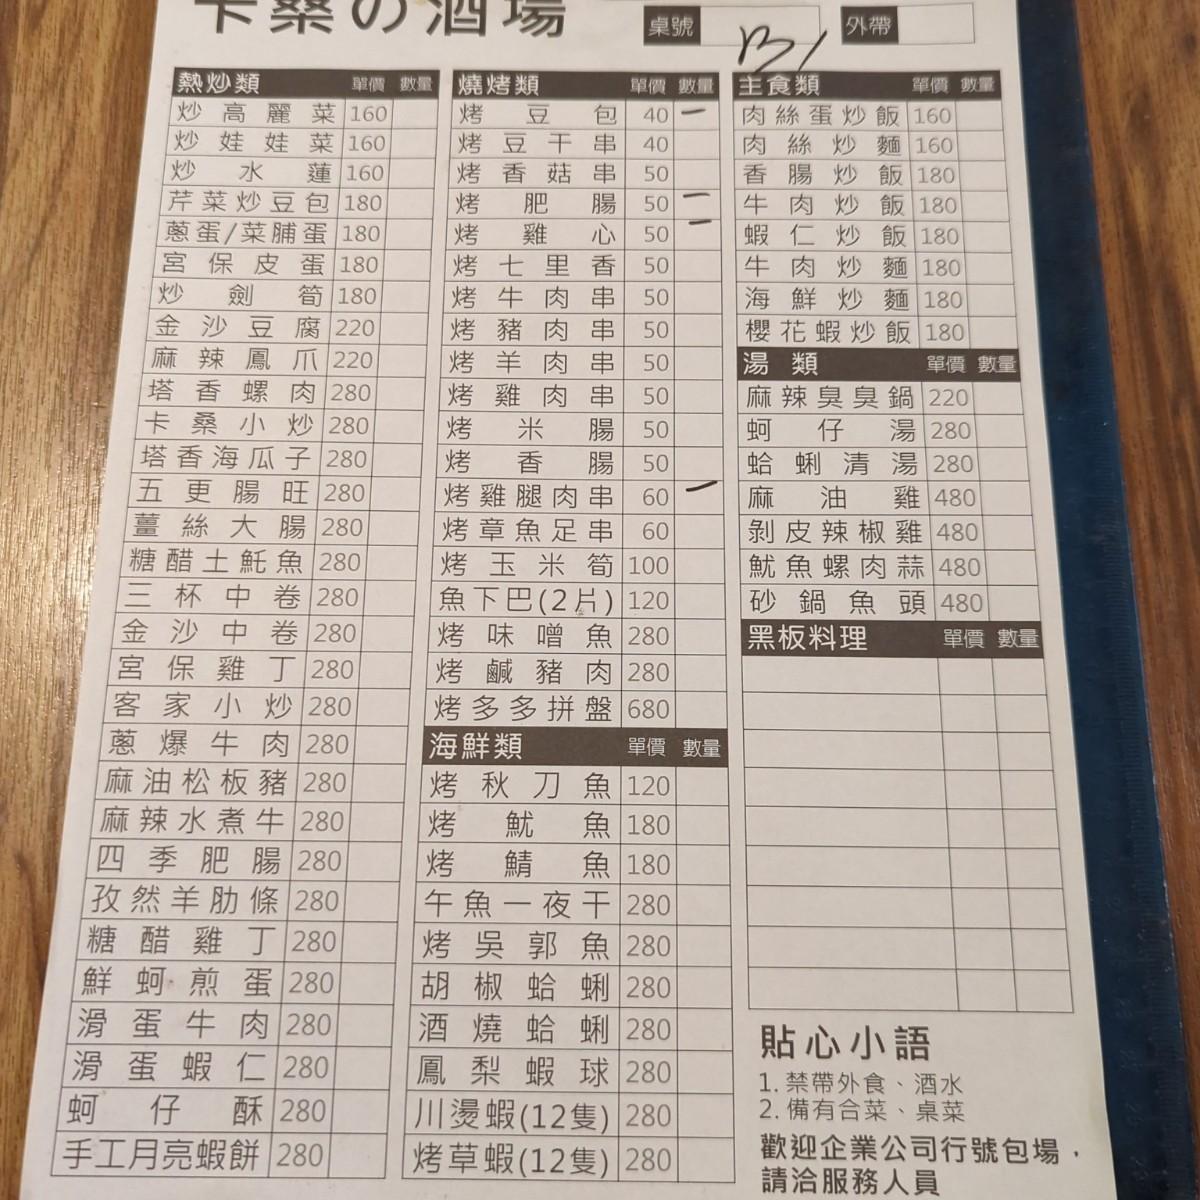 卡桑の酒場
桌號 B1 外帶
熱炒類 單價 數量
炒高麗菜 160
炒娃娃菜 160
炒水蓮 160
芹菜炒豆包 180
蔥蛋/菜脯蛋 180
宮保皮蛋 180
炒劍筍 180
金沙豆腐 220
麻辣鳳爪 220
塔香螺肉 280
卡桑小炒 280
塔香海瓜子 280
五更腸旺 280
薑絲大腸 280
糖醋土魠魚 280
三杯中卷 280
金沙中卷 280
宮保雞丁 280
客家小炒 280
蔥爆牛肉 280
麻油松板豬 280
麻辣水煮牛 280
四季肥腸 280
孜然羊肋條 280
糖醋雞丁 280
鮮蚵煎蛋 280
滑蛋牛肉 280
滑蛋蝦仁 280
蚵仔酥 280
手工月亮蝦餅 280
燒烤類 單價 數量
烤豆包 40 一
烤豆干串 40
烤香菇串 50
烤肥腸 50 二
烤雞心 50
烤七里香 50
烤牛肉串 50
烤豬肉串 50
烤羊肉串 50
烤雞肉串 50
烤米腸 50
烤香腸 50
烤雞腿肉串 60 一
烤章魚足串 60
烤玉米筍 100
魚下巴(2片) 120
烤味噌魚 280
烤鹹豬肉 280
烤多多拼盤 680
海鮮類 單價 數量
烤秋刀魚 120
烤魷魚 180
烤鯖魚 180
午魚一夜干 280
烤吳郭魚 280
胡椒蛤蜊 280
酒燒蛤蜊 280
鳳梨蝦球 280
川燙蝦(12隻) 280
烤草蝦(12隻) 280
主食類 單價 數量
肉絲蛋炒飯 160
肉絲炒麵 160
香腸炒飯 180
牛肉炒飯 180
蝦仁炒飯 180
牛肉炒麵 180
海鮮炒麵 180
櫻花蝦炒飯 180
湯類 單價 數量
麻辣臭臭鍋 220
蚵仔湯 280
蛤蜊清湯 280
麻油雞 480
剝皮辣椒雞 480
魷魚螺肉蒜 480
砂鍋魚頭 480
黑板料理 單價 數量
貼心小語
1. 禁帶外食、酒水
2. 備有合菜、桌菜
歡迎企業公司行號包場，
請洽服務人員